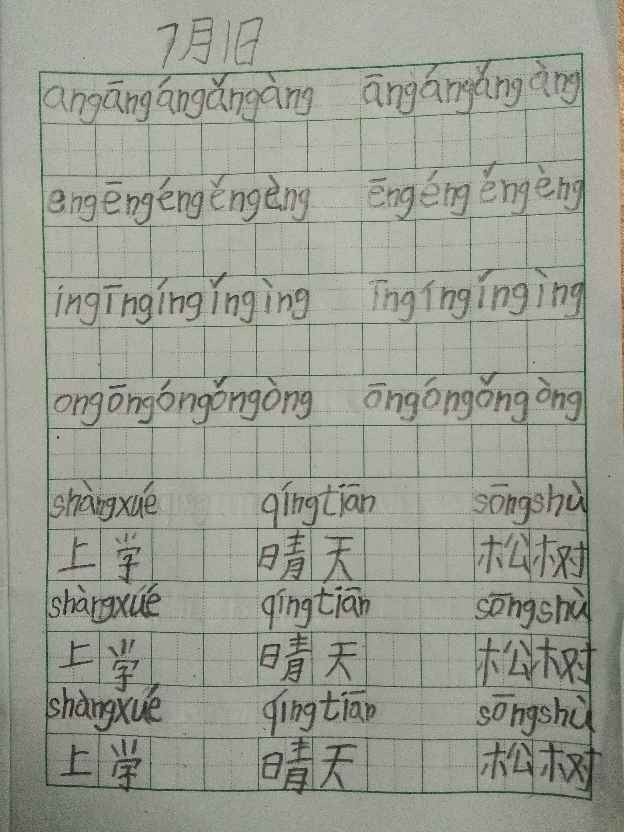 7月1日
angāngángǎngàng āngángǎngàng
engēngéngěngèng ēngéngěngèng
ingīngíngǐngìng īngíngǐngìng
ongōngóngǒngòng ōngóngǒngòng
shàngxué qíngtiān sōngshù
上学 晴天 松树
shàngxué qíngtiān sōngshù
上学 晴天 松树
shàngxué qíngtiān sōngshù
上学 晴天 松树